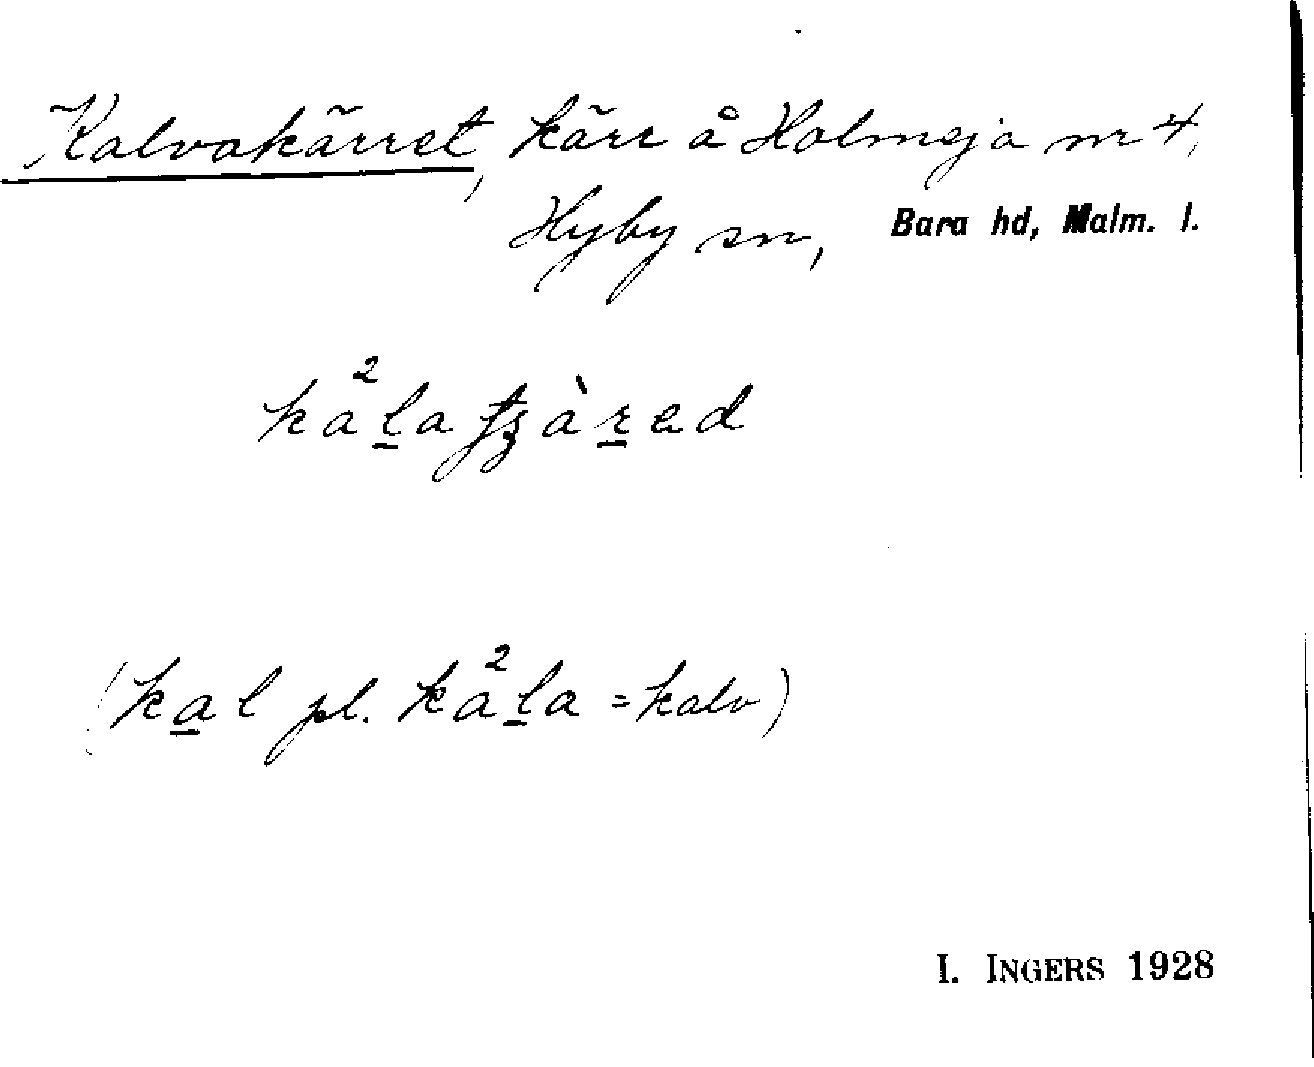 Kalvakärret, kärr å Holmeja nr 4,
Hyby sn, Bara hd, Malm. l.
ka²l̲a ƭʒàr̲ed
(ka̲l pl. ka²l̲a = kalv)
I. INGERS 1928